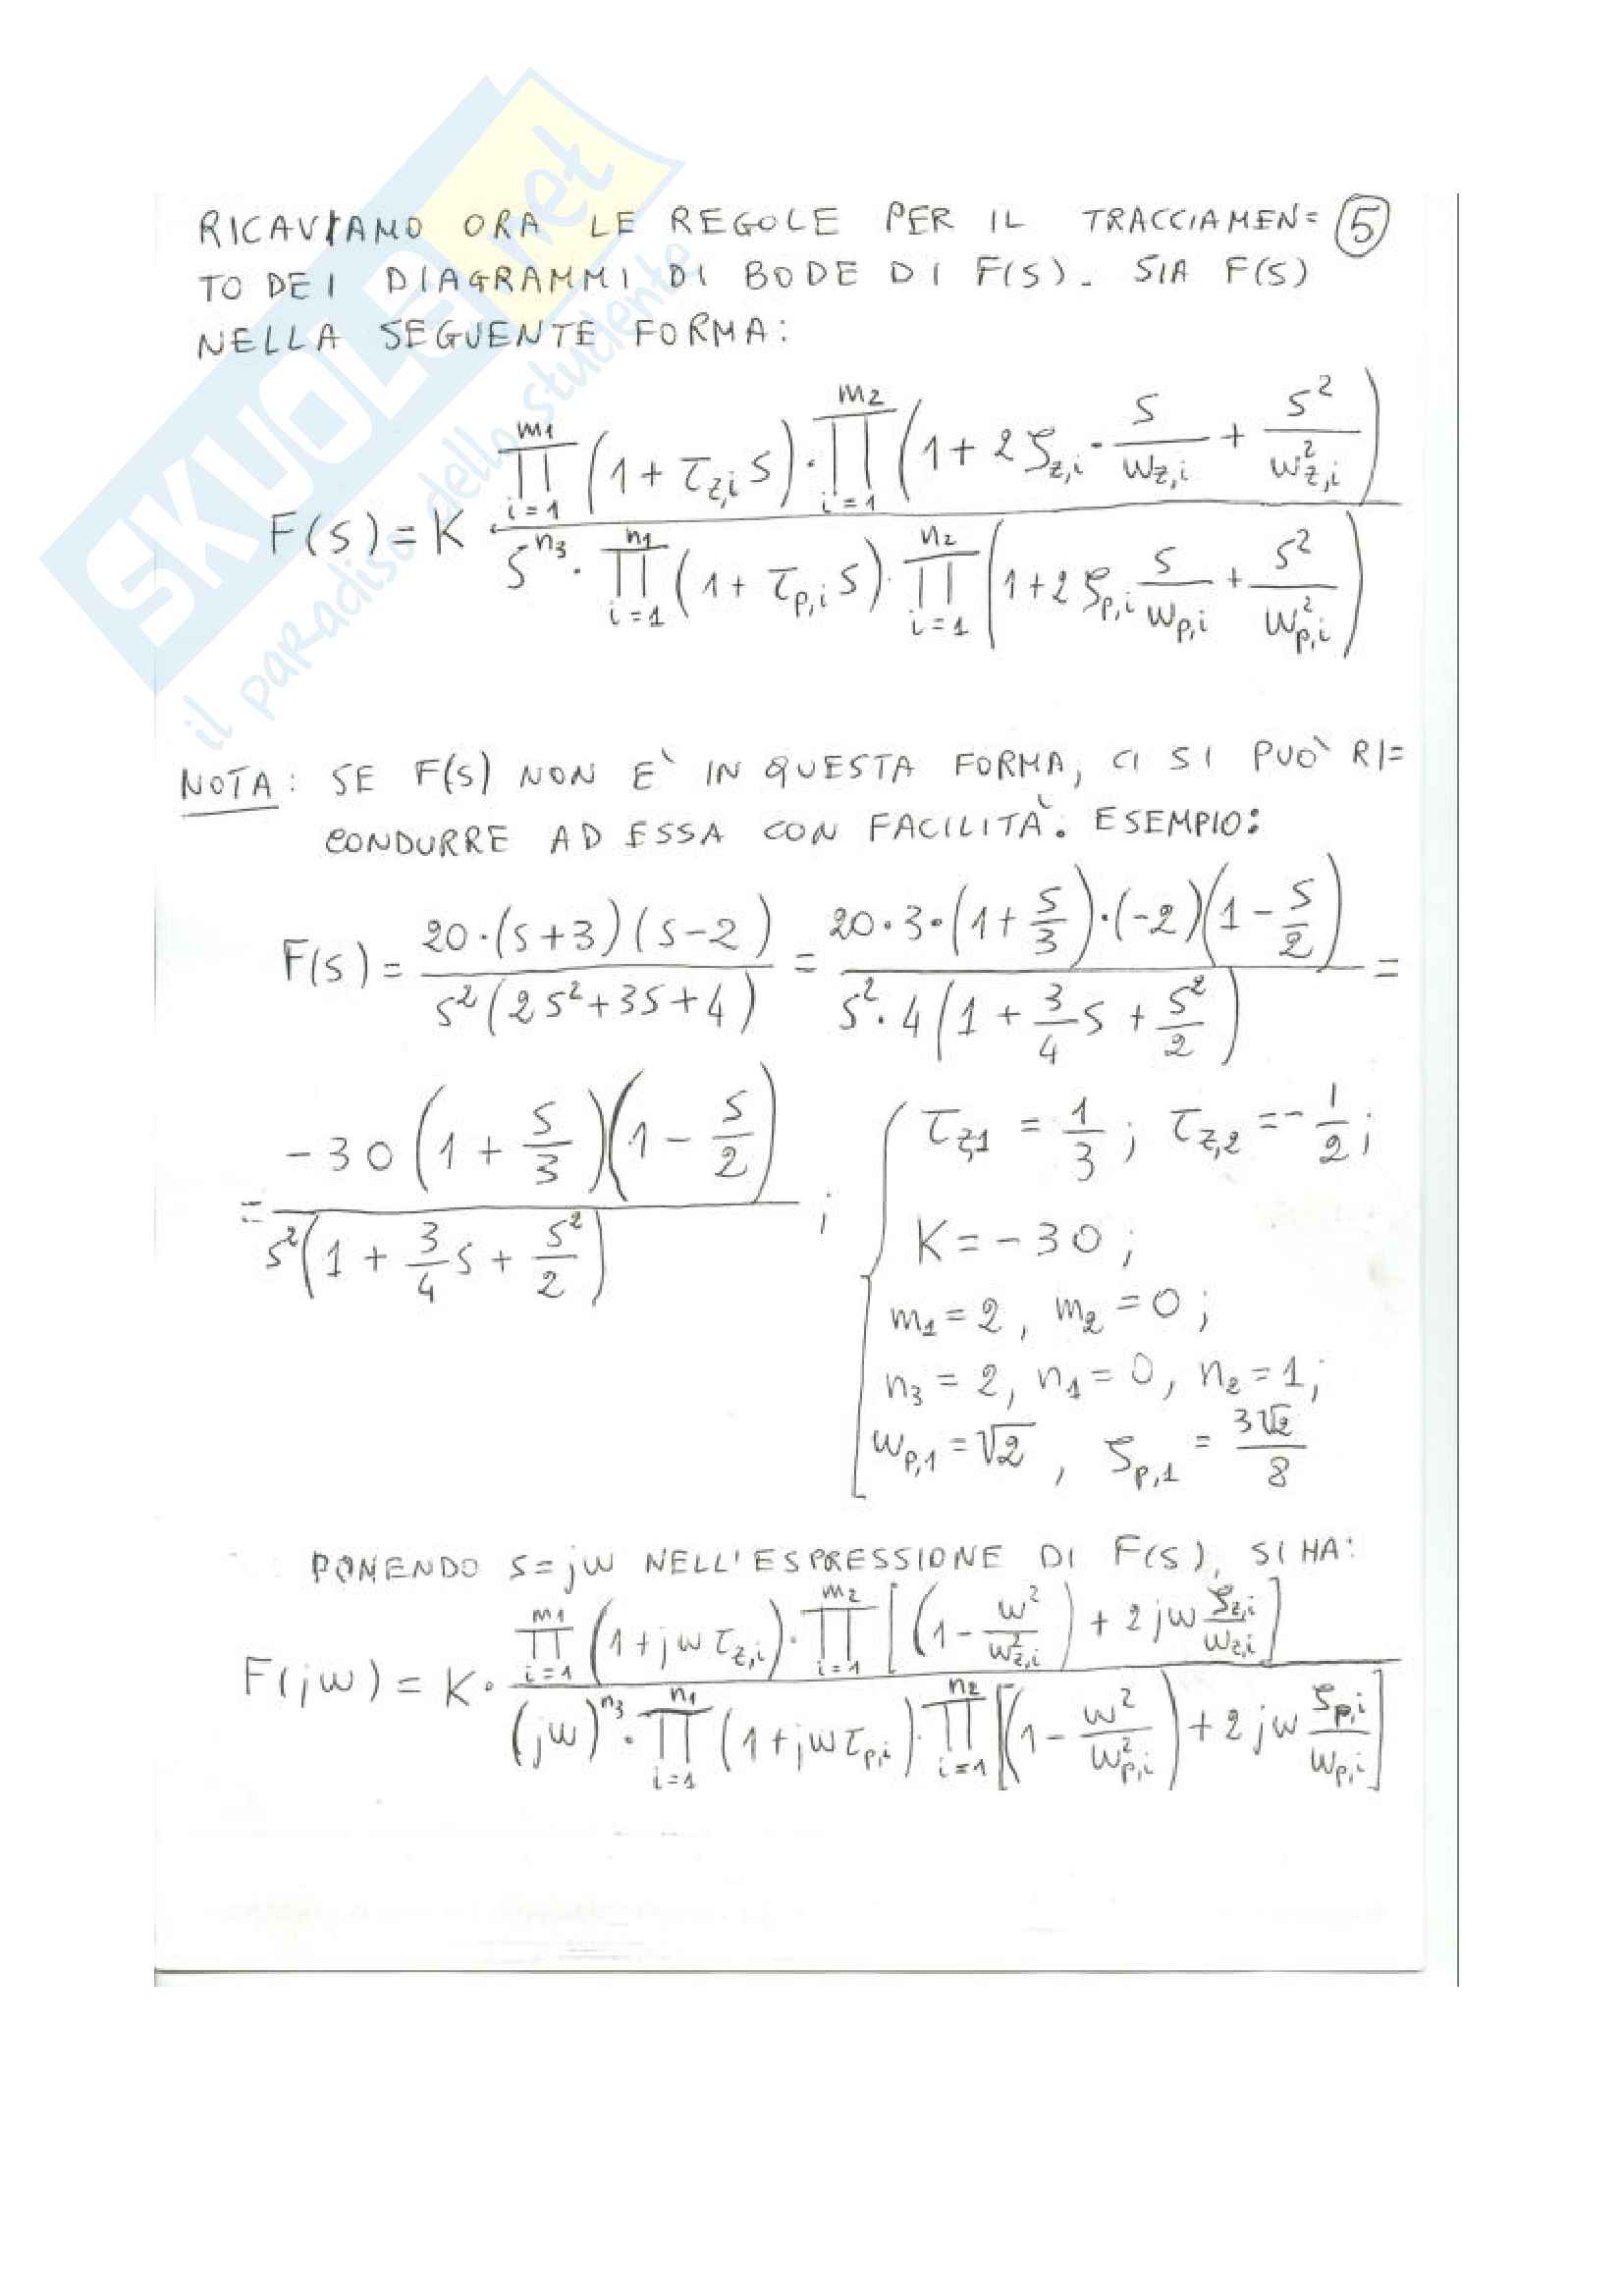 SKUOLA.net
il paradiso dello studente
RICAVIAMO ORA LE REGOLE PER IL TRACCIAMEN= 5
TO DEI DIAGRAMMI DI BODE DI F(S). SIA F(S)
NELLA SEGUENTE FORMA:
F(s) = K · ∏_{i=1}^{m1} (1 + τ_{z,i} s) · ∏_{i=1}^{m2} (1 + 2 ζ_{z,i} · s/ω_{z,i} + s²/ω²_{z,i}) / s^{n3} · ∏_{i=1}^{n1} (1 + τ_{p,i} s) · ∏_{i=1}^{n2} (1 + 2 ζ_{p,i} s/ω_{p,i} + s²/ω²_{p,i})
NOTA: SE F(s) NON E' IN QUESTA FORMA, CI SI PUÒ RI=
CONDURRE AD ESSA CON FACILITÀ. ESEMPIO:
F(s) = 20·(s+3)(s-2) / s²(2s²+3s+4) = 20·3·(1+s/3)·(-2)(1-s/2) / s²·4(1+3/4 s+s²/2) =
= -30(1+s/3)(1-s/2) / s²(1+3/4 s+s²/2) ;
τ_{z,1} = 1/3 ; τ_{z,2} = -1/2 ;
K = -30 ;
m1 = 2 , m2 = 0 ;
n3 = 2, n1 = 0, n2 = 1 ;
ω_{p,1} = √2 , ζ_{p,1} = 3√2/8
PONENDO S=jω NELL'ESPRESSIONE DI F(S), SI HA:
F(jω) = K · ∏_{i=1}^{m1} (1+jω τ_{z,i}) · ∏_{i=1}^{m2} [(1 - ω²/ω²_{z,i}) + 2jω ζ_{z,i}/ω_{z,i}] / (jω)^{n3} · ∏_{i=1}^{n1} (1+jω τ_{p,i}) · ∏_{i=1}^{n2} [(1 - ω²/ω²_{p,i}) + 2jω ζ_{p,i}/ω_{p,i}]